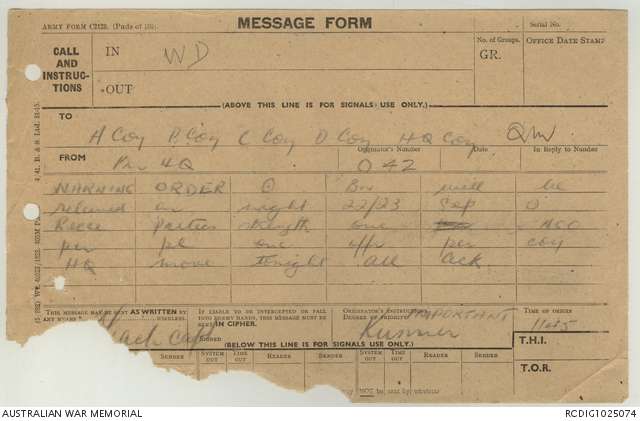 ARMY FORM C2128. (Pads of 100).
MESSAGE FORM
Serial No.
CALL AND INSTRUCTIONS
IN
WD
OUT
No. of Groups.
GR.
OFFICE DATE STAMP
(ABOVE THIS LINE IS FOR SIGNALS' USE ONLY.)
TO
A Coy B Coy C Coy D Coy HQ Coy QM
FROM
Originator's Number
Date
In Reply to Number
Bn HQ
O 42
WARNING ORDER O Bn will be
relieved on night 22/23 Sep O
Recce Parties strength one NCO
per pl one offr per coy
HQ move tonight all ack
THIS MESSAGE MAY BE SENT AS WRITTEN BY
WIRELESS.
IF LIABLE TO BE INTERCEPTED OR FALL INTO ENEMY HANDS, THIS MESSAGE MUST BE SENT IN CIPHER.
ORIGINATOR'S INSTRUCTIONS
DEGREE OF PRIORITY
IMPORTANT
TIME OF ORIGIN
1105
SIGNED
Runner
(BELOW THIS LINE IS FOR SIGNALS USE ONLY.)
T.H.I.
SENDER
SYSTEM OUT
TIME OUT
READER
SENDER
SYSTEM OUT
TIME OUT
READER
SENDER
T.O.R.
NOT to sent by wireless
AUSTRALIAN WAR MEMORIAL
RCDIG1025074